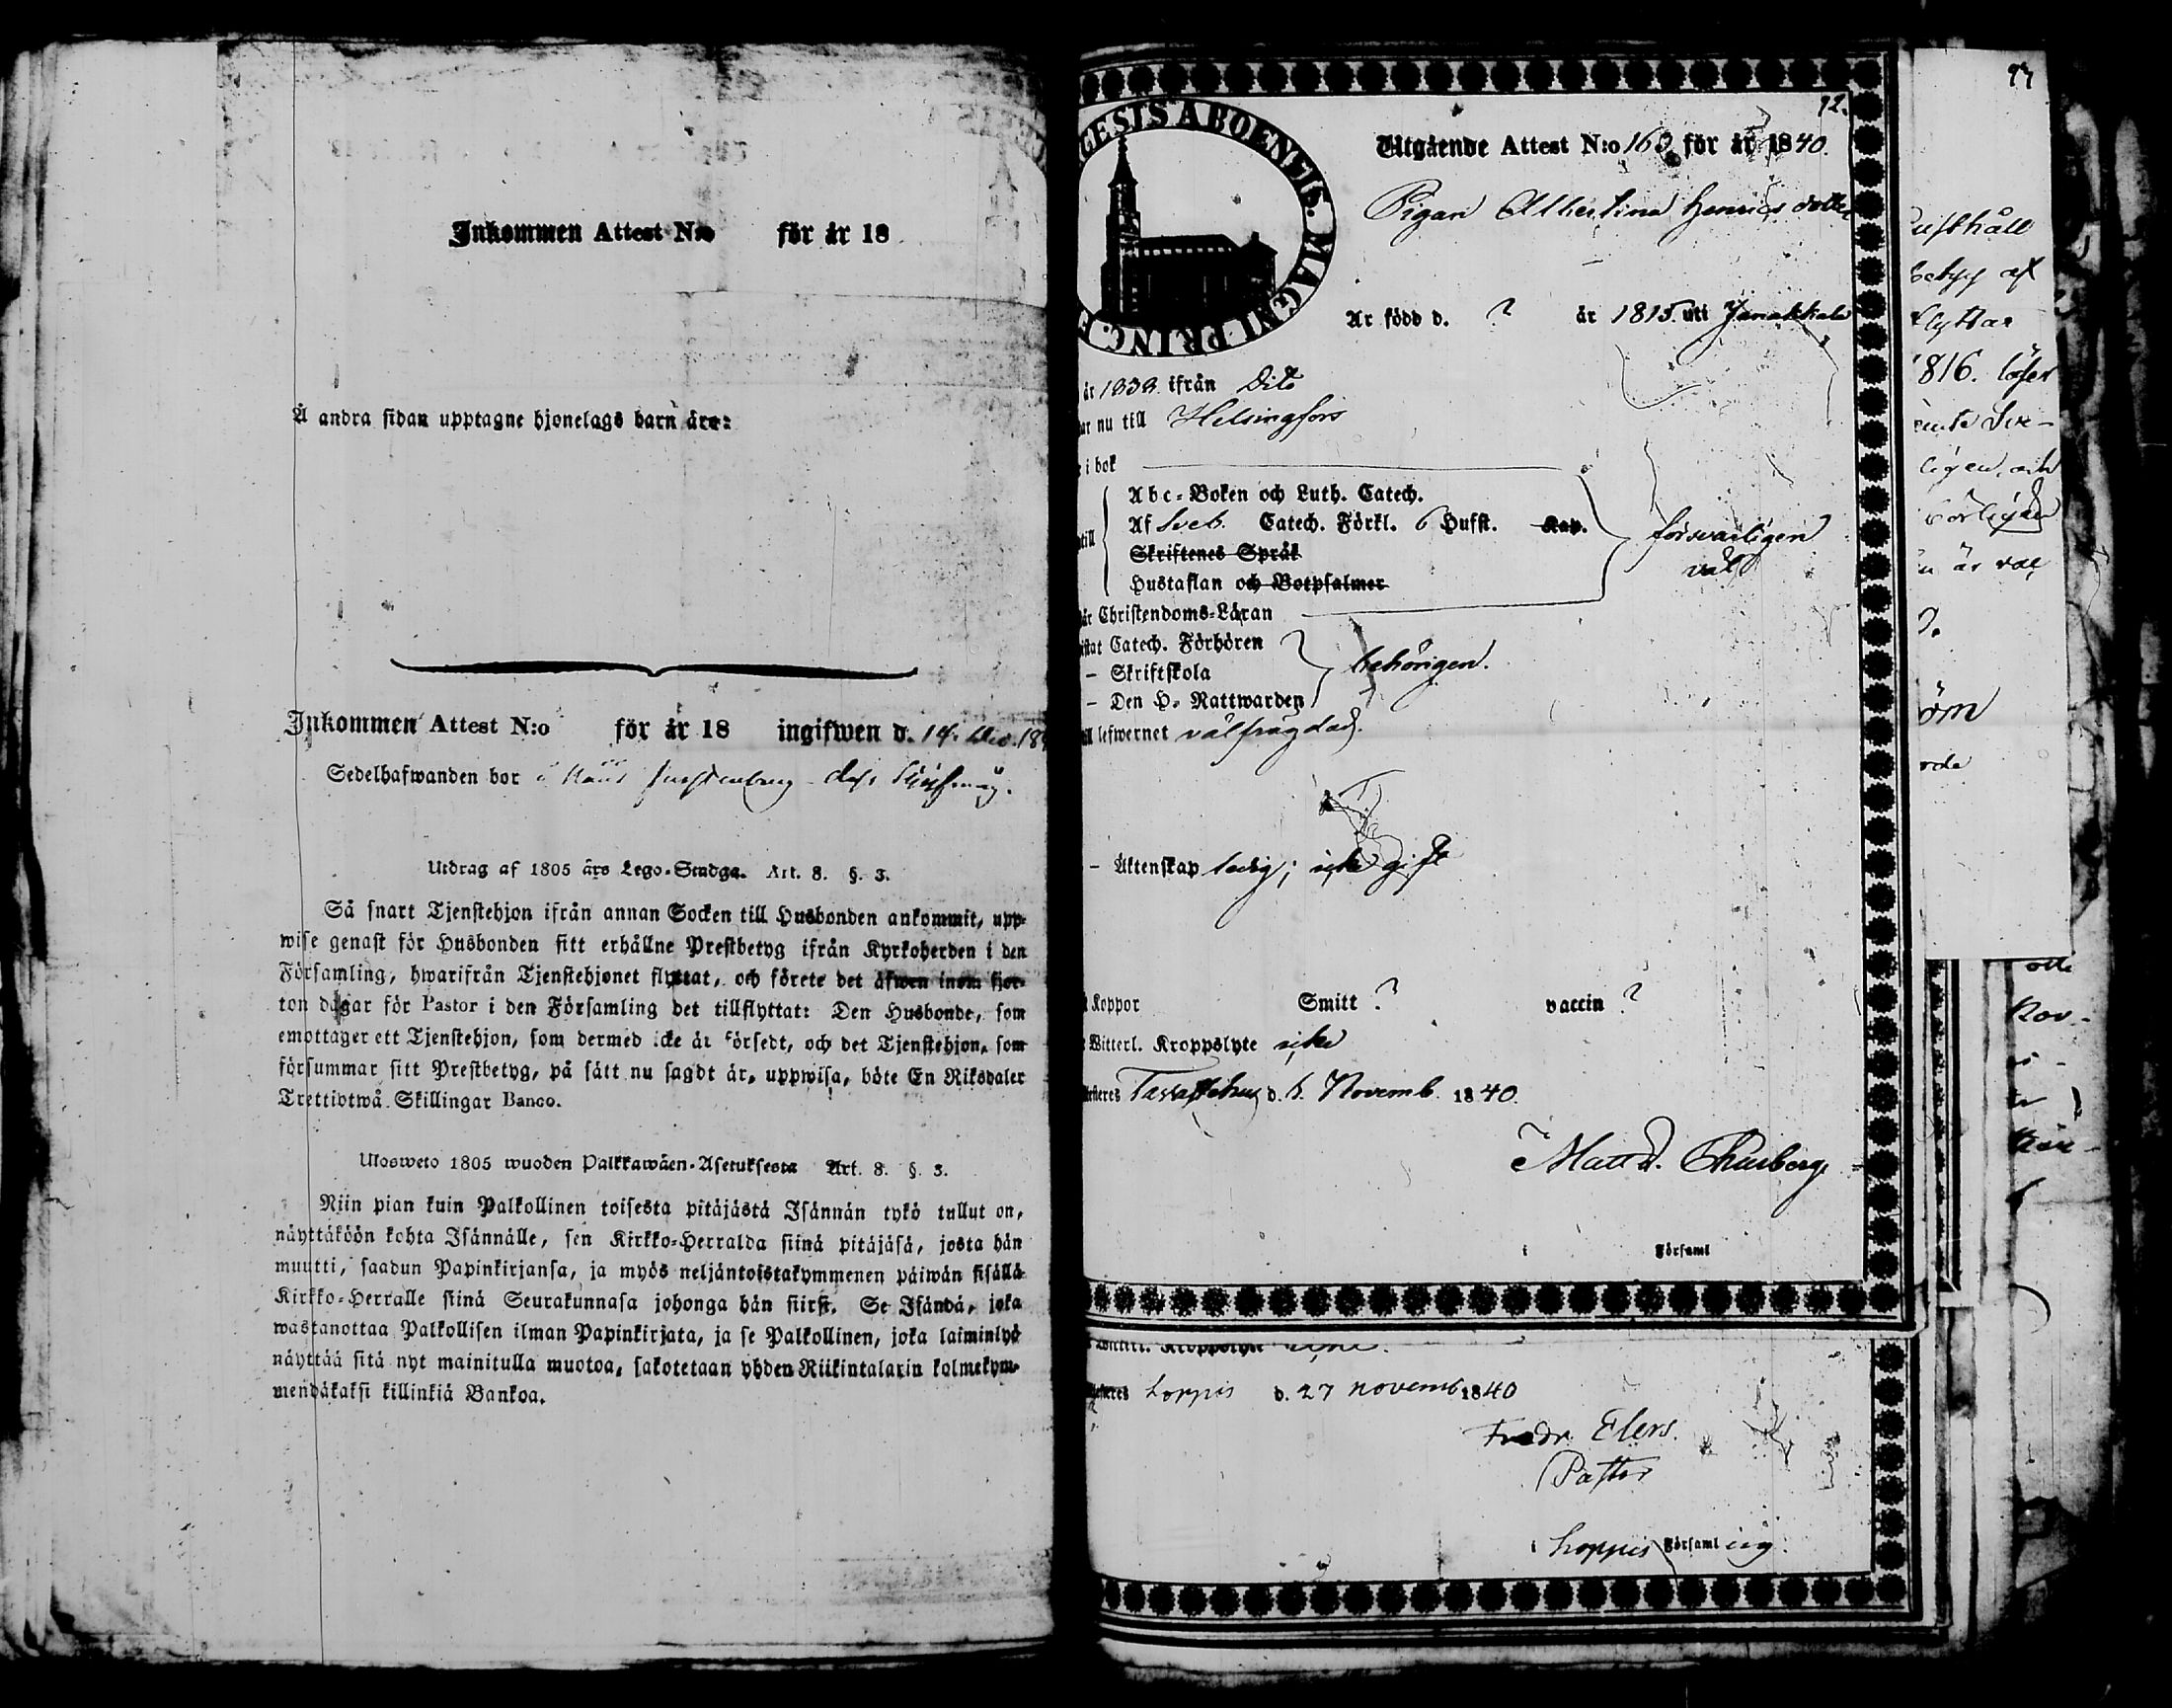 Inkommen Attest N:o för år 18
Å andra sidan upptagne hjonelags barn äro:
Inkommen Attest N:o för år 18 ingifwen d. 14. Dec. 18
Sedelhafwanden bor
Utdrag af 1805 års Lego-Stadga. Art. 8. §. 3.
Så snart Tjenstehjon ifrån annan Socken till Husbonden ankommit, upp-
wise genast för Husbonden sitt erhållne Prestbetyg ifrån Kyrkoherden i den
Församling, hwarifrån Tjenstehjonet flyttat, och förete det äfwen inom fjor-
ton dagar för Pastor i den Församling det tillflyttat: Den Husbonde, som
emottager ett Tjenstehjon, som dermed icke är försedt, och det Tjenstehjon, som
försummar sitt Prestbetyg, på sätt nu sagdt är, uppwisa, böte En Riksdaler
Trettiotwå Skillingar Banco.
Ulosweto 1805 wuoden Palkkawäen-Asetuksesta Art. 8. §. 3.
Niin pian kuin Palkollinen toisesta pitäjästä Isännän tykö tullut on,
näyttäköön kohta Isännälle, sen Kirkko-Herralda siinä pitäjäsä, josta hän
muutti, saadun Papinkirjansa, ja myös neljäntoistakymmenen päiwän sisällä
Kirkko-Herralle siinä Seurakunnasa johonga hän siirst. Se Isändä, joka
wastanottaa Palkollisen ilman Papinkirjata, ja se Palkollinen, joka laiminlyö
näyttää sitä nyt mainitulla muotoa, sakotetaan yhden Riikintalarin kolmekym-
mendäkaksi killinkiä Bankoa.
92.
CESIS ABOENSIS. MAGNI PRINC. F
Utgående Attest N:o 163 för år 1840.
Pigan Albertina Henricsdotter
Är född d. ? år 1815. uti Janakkala
år 1839. ifrån Dito
ar nu till Helsingfors
i bok
Abc-Boken och Luth. Catech.
till Af Sveb. Catech. Förkl. 6 Hufst. Kap. försvarligen
Skriftenes Språk väl
Hustaflan och Botpsalmer
är Christendoms-Läran
istat Catech. Förhören
– Skriftskola behörigen.
– Den H. Nattwarden
ll lefwernet välfrägdad.
– Äktenskap ledig; icke gift
Koppor Smitt ? vaccin ?
Witterl. Kroppslyte icke
Tavastehus d. 6. Novemb. 1840.
Matt
i Församl
Witterl. Kroppslyte icke.
Loppis d. 27 novemb 1840
Fredr. Elers.
Pastor
i Loppis Församling.
usthåll
betyg af
flyttar
1816. läser
ligen, och
är väl
öm